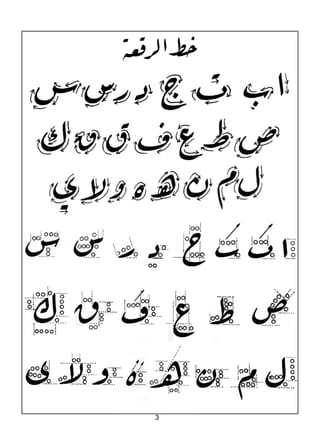 خط الرقعة
ا ب ت ج د ر س س
ص ط ع ف ق ق ك
ل م ن ه ه و لا ي
ا ک ت ج د ر س س
ص ط ع ف ق ك
ل م ن ه ه و لا ى
3